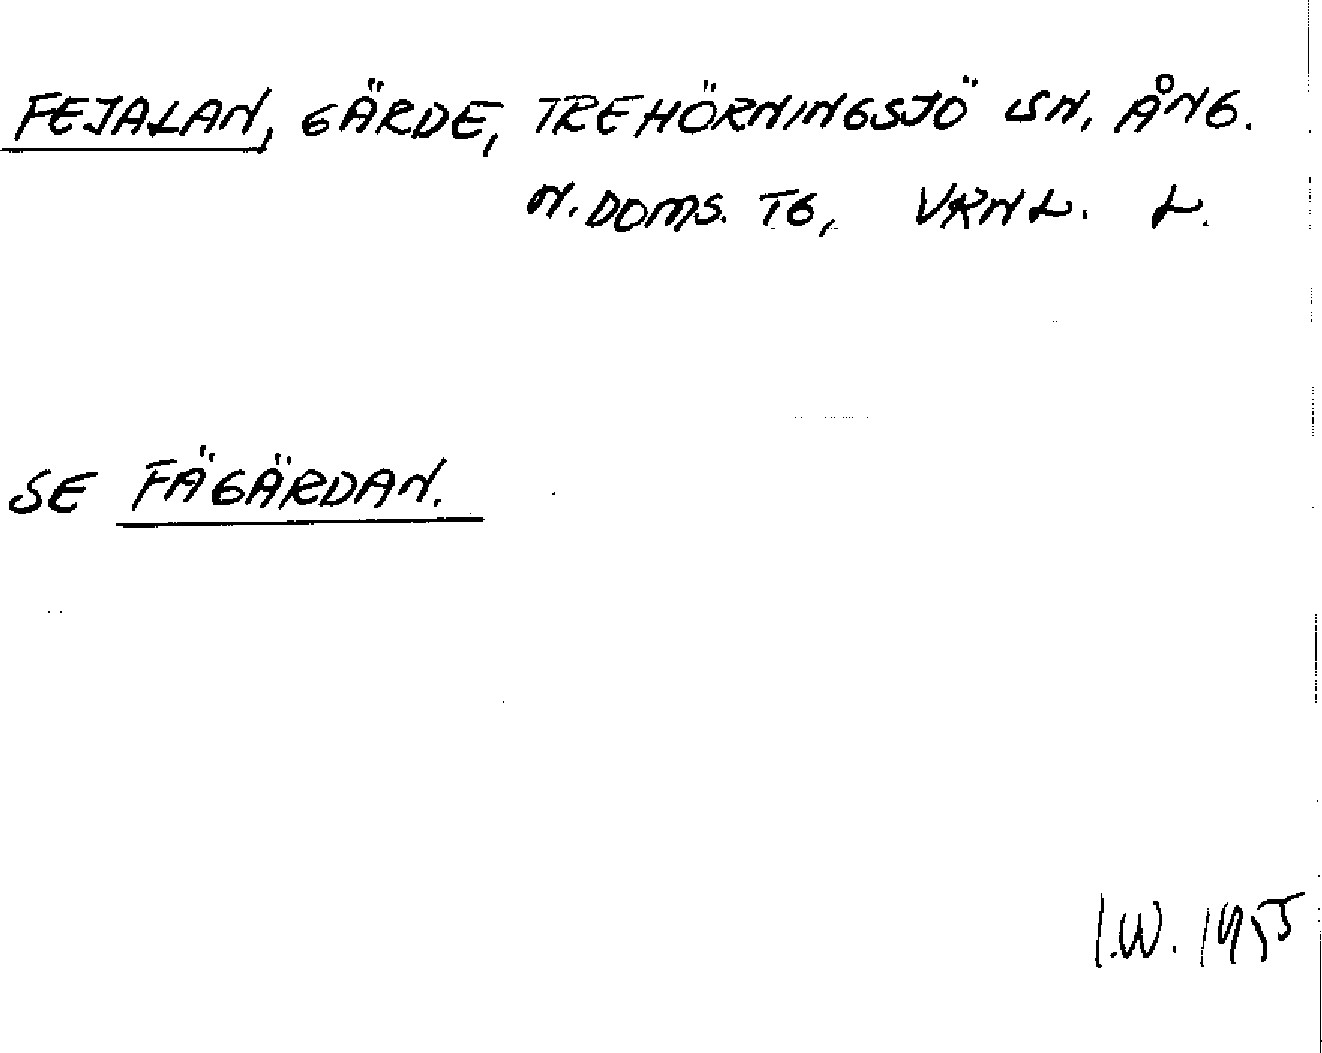 FEJALAN, GÄRDE, TREHÖRNINGSJÖ SN, ÅNG.
N. DOMS. TG, VRNL. L.
SE FÄGÄRDAN.
I.W. 1955